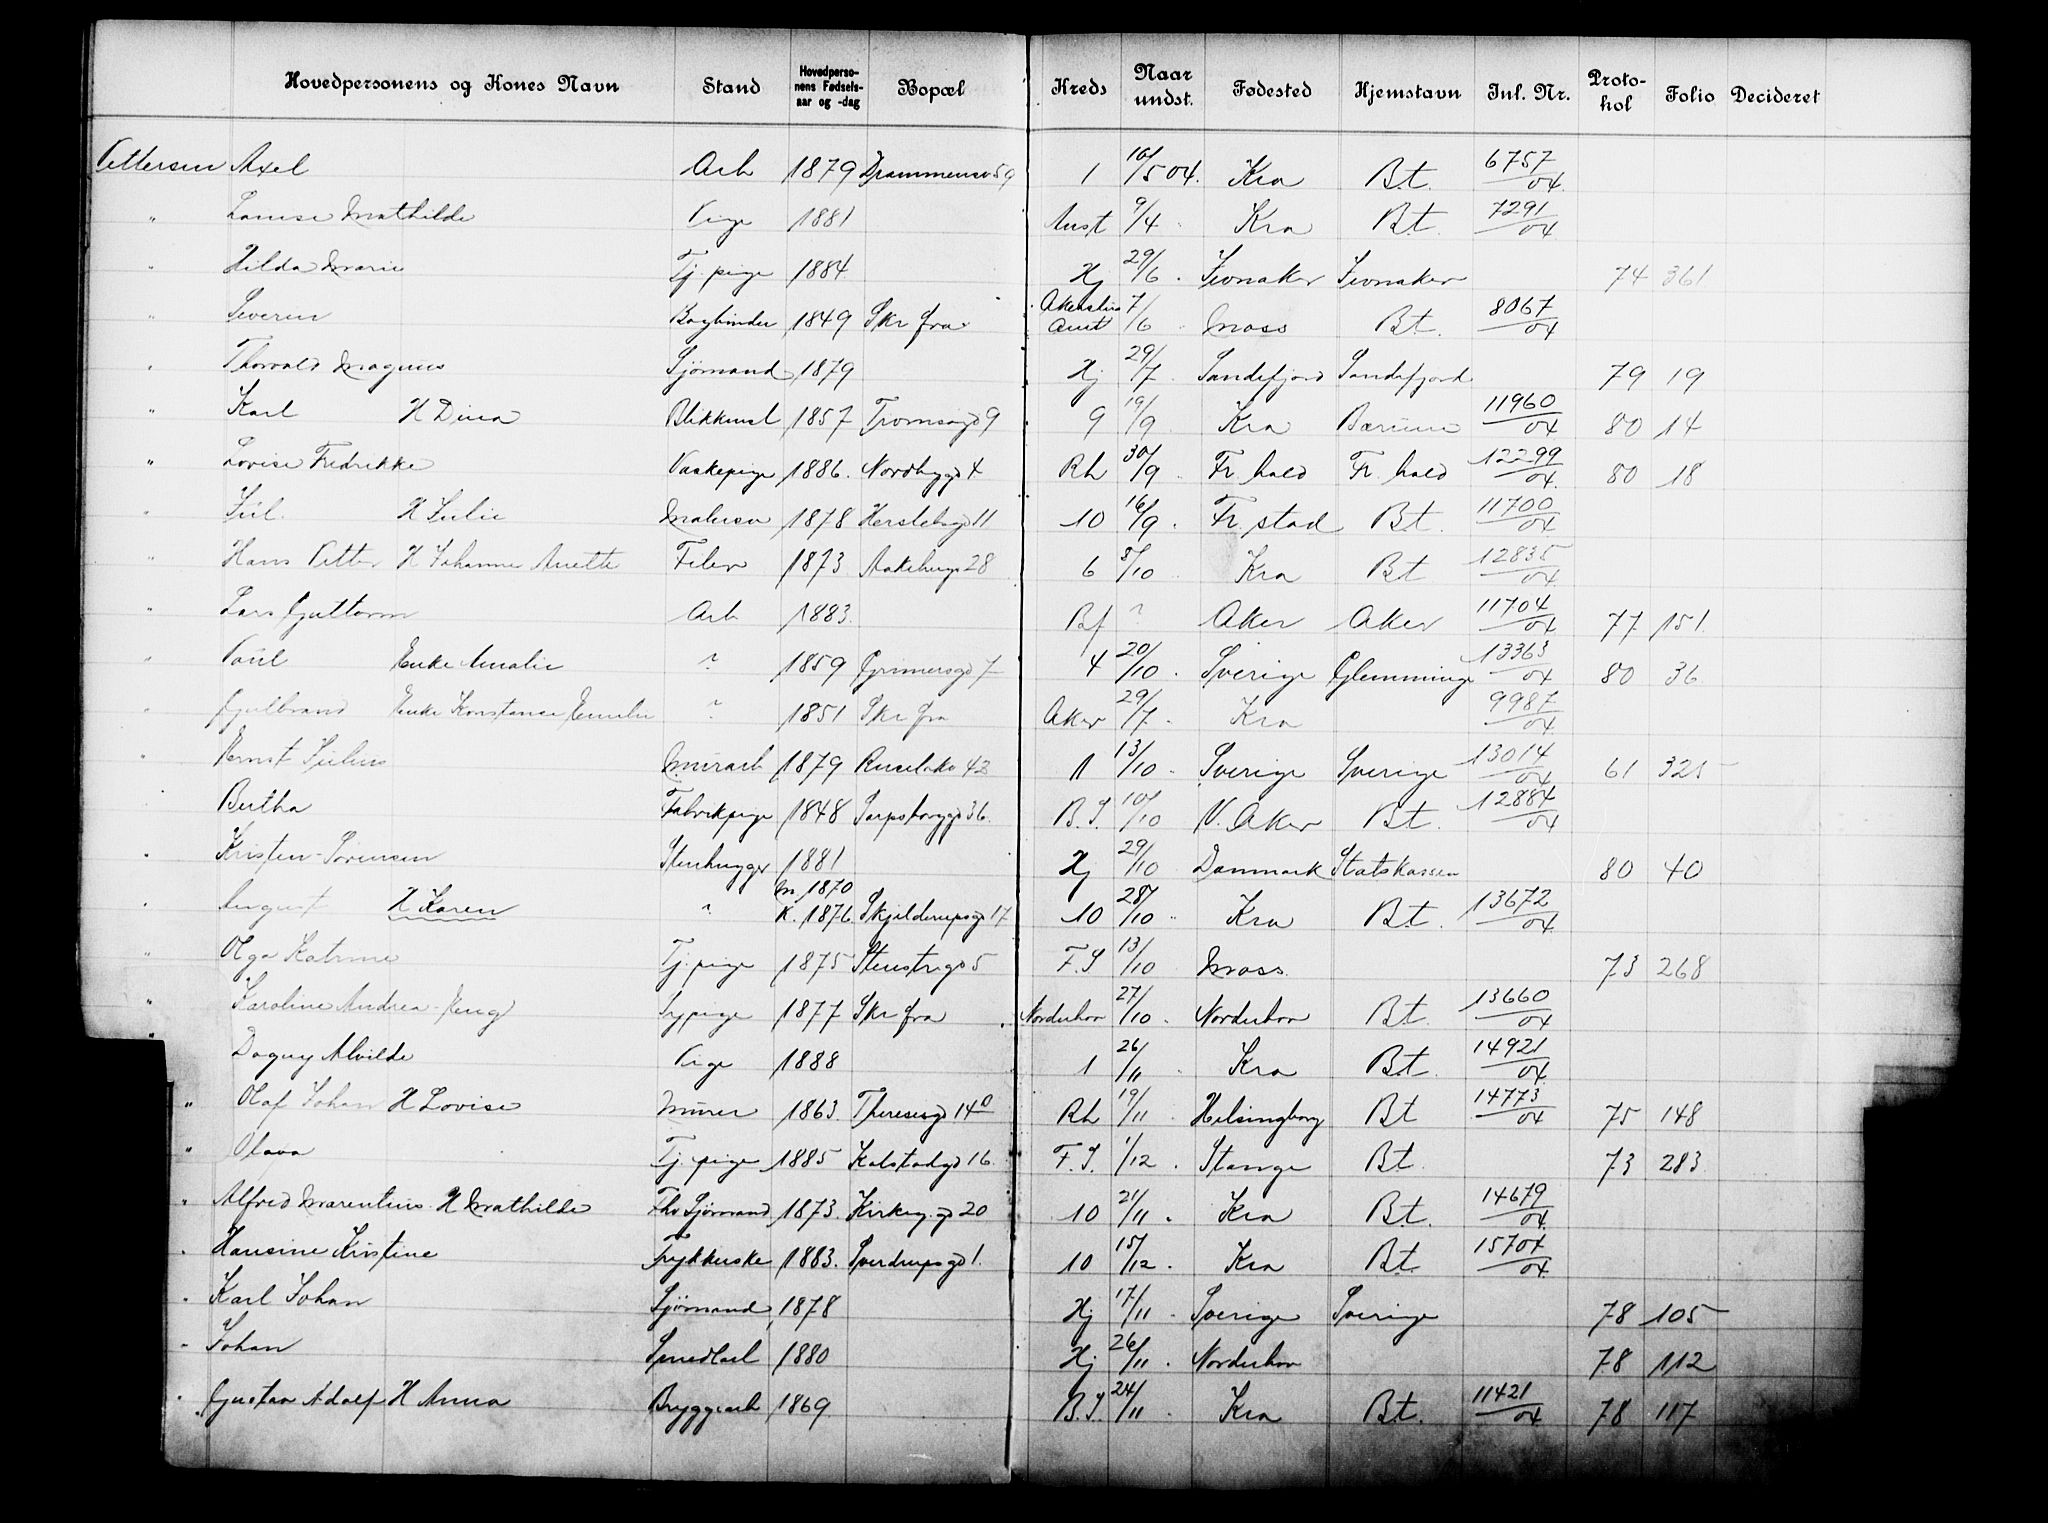 Hovedpersonens og Kones Navn Stand Hovedperso-nens Fødsels-aar og -dag Bopæl Kreds Naar undst. Fødested Hjemstavn Inl. Nr. Proto-kol Folio Decideret
Pettersen Axel Arb 1879 Drammensv 59 1 10/5 04. Kra Bt. 6757/04
" Louise Mathilde Pige 1881 Aust 9/4 " Kra Bt. 7291/04
" Hilda Marie Tj. pige 1884 Hj 29/6 " Jevnaker Jevnaker 74 361
" Severin Bogbinder 1849 Skr fra Akershus Amt 7/6 " Moss Bt. 8067/04
" Thorvald Magnus Sjömand 1879 Hj 29/7 " Sandefjord Sandefjord 79 19
" Karl H Dina Blikkensl 1857 Tromsøgd 9 9 19/9 Kra Bærum 11960/04 80 14
" Lovise Fredrikke Vaskepige 1886. Nordbygd 4 Rh 30/9 " Fr. hald Fr. hald 12299/04 80 18
" Jul. H Julie Malersv 1878 Herslebsgd 11 10 16/9 " Fr. stad Bt. 11700/04
" Hans Petter H Johanne Anette Filer 1873 Aakebergv 28 6 8/10 " Kra Bt 12835/04
" Lars Guttorm Arb 1883. Bf ? Aker Aker 11704/04 77 151
" Paul Enke Amalie ? 1859 Grimersgd 7 4 20/10 " Sverige Glemminge 13363/04 80 36
" Gulbrand Enke Konstance Emilie ? 1851 Skr fra Aker 29/7 " Kra 9987/04
" Ernst Julius Murarb 1879 Ruseløkv 43 1 13/10 " Sverige Sverige 13014/04 61 325
" Bertha Fabrikpige 1848 Sarpsborggd 36. B.S. 10/10 V. Aker Bt. 12884/04
" Kristen Sørensen Stenhugger 1881 Hj 29/10 Danmark Statskassen 80 40
" August H Karen ? M. 1870 K. 1876 Skjelderupsgd 17 10 28/10 " Kra Bt. 13672/04
" Olga Katrine Tj. pige 1875 Stenstrgd 5 F.S 13/10 Moss. 73 268
" Karoline Andrea - Eng Sypige 1877 Skr fra Norderhov 27/10 " Norderhov Bt. 13660/04
" Dagny Alvilde Pige 1888 1 26/11 " Kra Bt. 14921/04
" Olaf Johan H Lovise Murer 1863. Theresesgd 14 Rh 19/11 " Helsingborg Bt 14773/04 75 148
" Olava Tj. pige 1885 Kalstadgd 16. F.S. 1/12 " Stange Bt. 73 283
" Alfred Marentius H Mathilde Fhv Sjömand 1873. Kirkeg. gd 20 10 21/11 " Kra Bt. 14679/04
" Hansine Kristine Trykkerske 1883. Sverdrupsgd 1. 10 15/12 " Kra Bt. 15704/04
" Karl Johan Sjömand 1878 Hj 17/11 " Sverige Sverige 78 105
" Johan Smedlarl 1880 Hj 26/11 " Norderhov 78 112
" Gustav Adolf H Anna Bryggearb 1869 B.S. 24/11 " Kra Bt. 11421/04 78 117